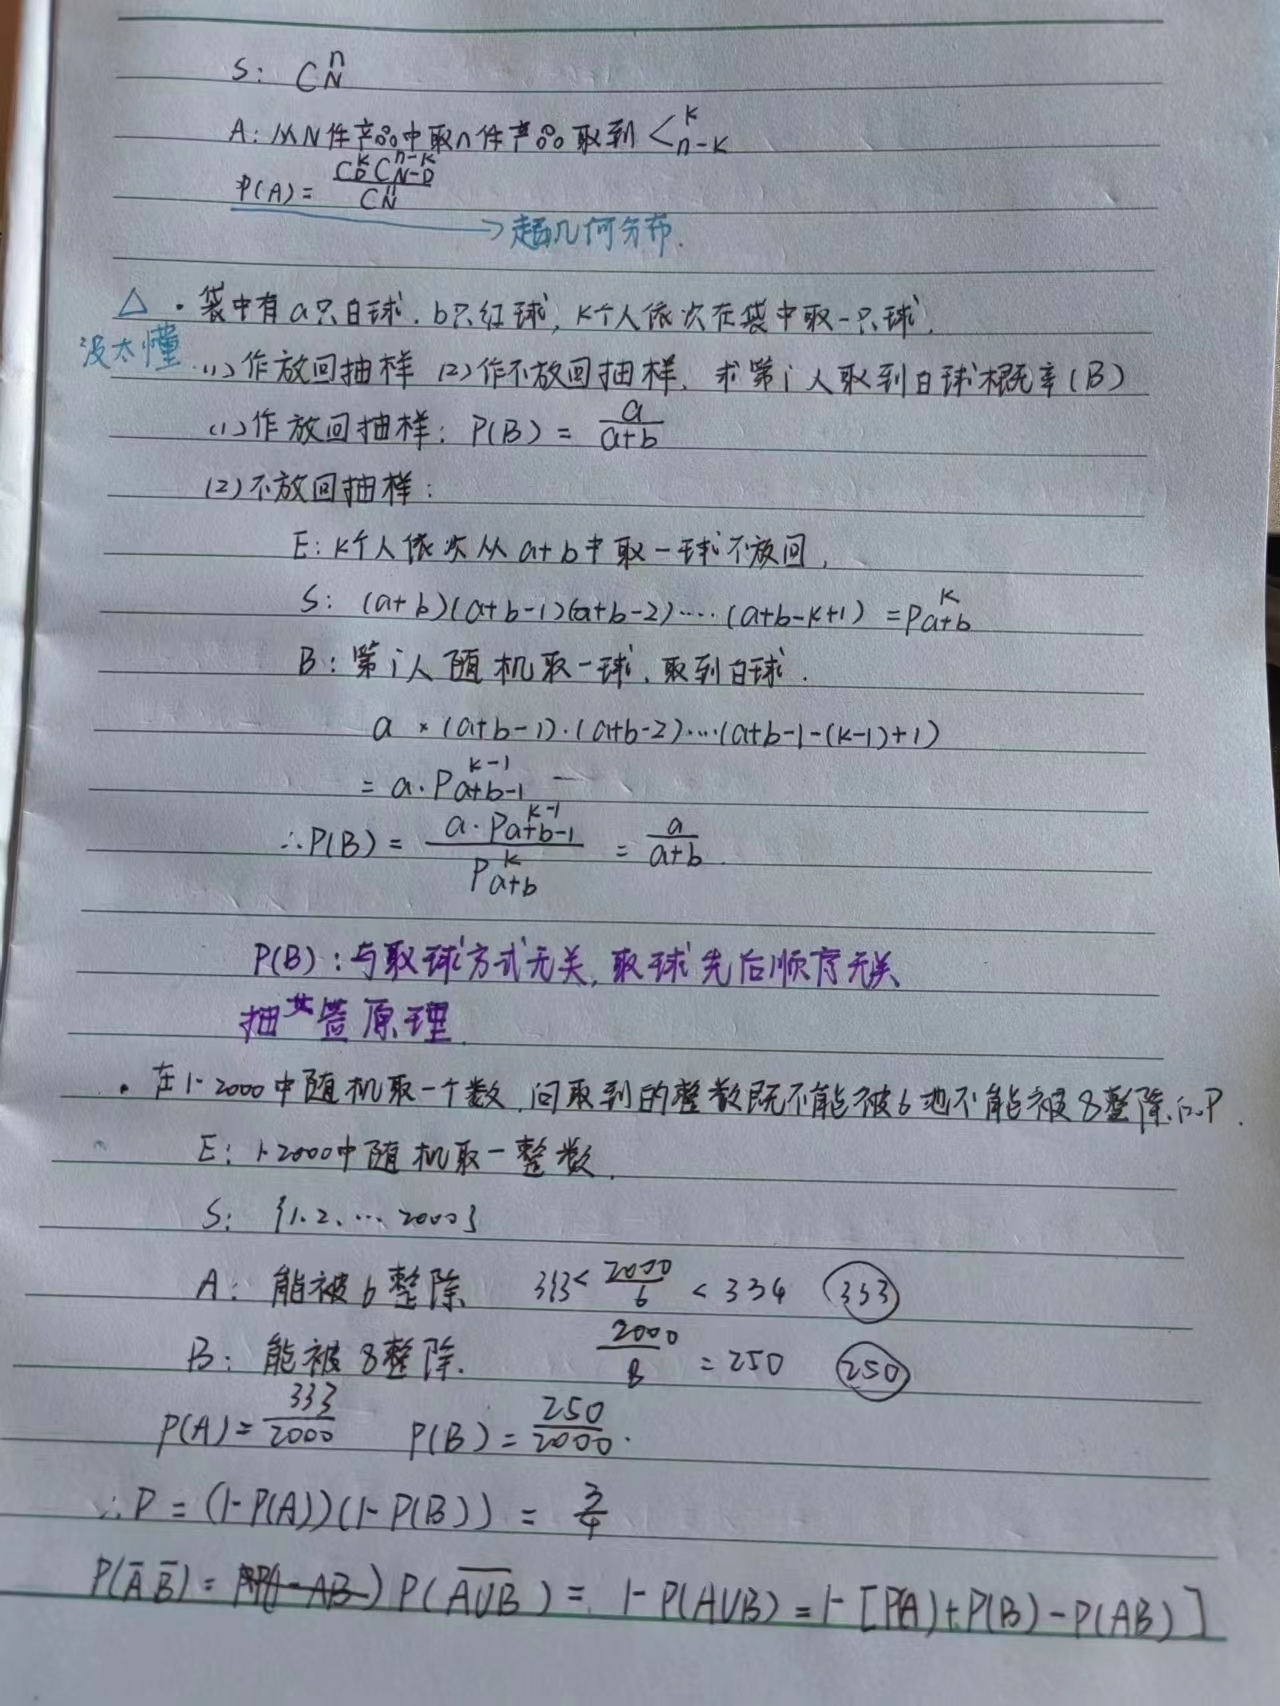 S: C_N^n
A: 从N件产品中取n件产品 取到 < k n-k
P(A) = C_D^k C_{N-D}^{n-k} / C_N^n
→ 超几何分布.
△ · 袋中有a只白球, b只红球, k个人依次在袋中取一只球,
没太懂 (1)作放回抽样 (2)作不放回抽样, 求第i人取到白球概率(B)
(1)作放回抽样: P(B) = a/(a+b)
(2)不放回抽样:
E: k个人依次从a+b中取一球不放回,
S: (a+b)(a+b-1)(a+b-2)····(a+b-k+1) = P_{a+b}^k
B: 第i人随机取一球, 取到白球.
a × (a+b-1)·(a+b-2)····(a+b-1-(k-1)+1)
= a·P_{a+b-1}^{k-1}
∴P(B) = a·P_{a+b-1}^{k-1} / P_{a+b}^k = a/(a+b)
P(B): 与取球方式无关, 取球先后顺序无关
抽签原理
· 在1-2000中随机取一个数, 问取到的整数既不能被6也不能被8整除的P.
E: 1-2000中随机取一整数.
S: {1.2.… 2000}
A: 能被6整除 333< 2000/6 < 334 333
B: 能被8整除. 2000/8 = 250 250
P(A) = 333/2000 P(B) = 250/2000.
∴P = (1-P(A))(1-P(B)) = 3/4
P(A̅ B̅) = P(A̅∪̅B̅) = 1-P(A∪B) = 1-[P(A)+P(B)-P(AB)]